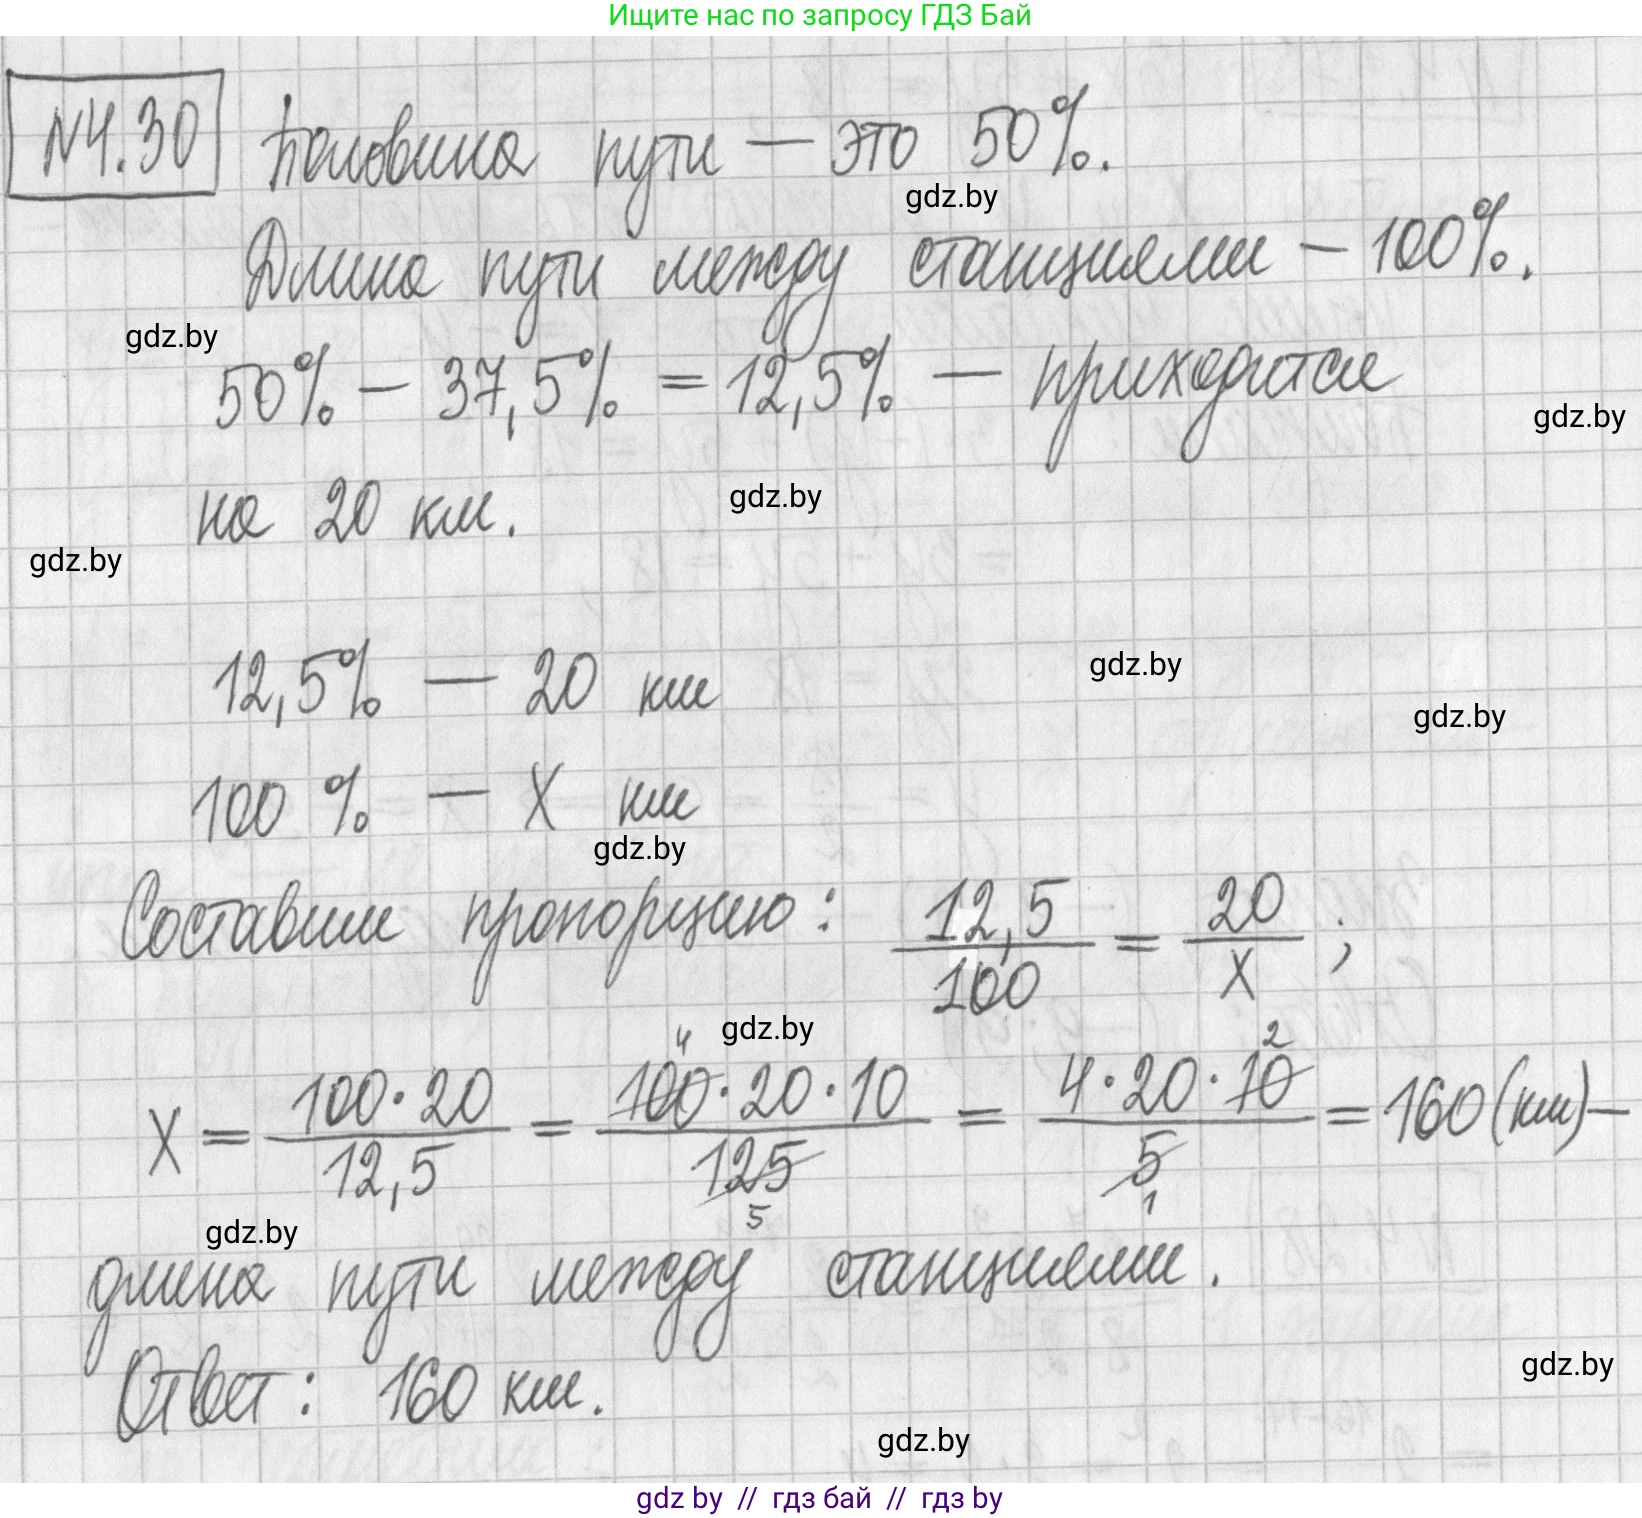 Ищите нас по запросу ГДЗ Бай
№4.30 Половина пути — это 50%.
gdz.by
Длина пути между станциями — 100%.
gdz.by
50% — 37,5% = 12,5% — приходятся
gdz.by
на 20 км.
gdz.by
gdz.by
12,5% — 20 км
gdz.by
gdz.by
100 % — X км
gdz.by
Составим пропорцию: 12,5/100 = 20/X ;
gdz.by
X = 100·20/12,5 = 100·20·10/125 = 4·20·10/5 = 160 (км) —
4 5 2 1
gdz.by
длина пути между станциями.
gdz.by
Ответ: 160 км.
gdz.by
gdz by // гдз бай // гдз by